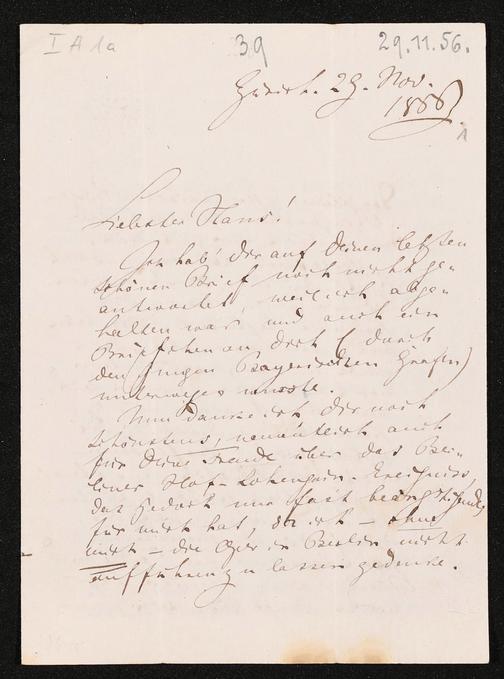 I A 1a 39 29.11.56.
Zürich. 29. Nov.
1856
1
Liebster Hans!
Ich hab' dir auf deinen letzten
schönen Brief noch nicht ge-
antwortet, weil ich abge-
halten war und auch ein
Briefchen an dich (durch
den jungen Bayerischen Grafen)
unterwegs wusste.
Nun danke ich dir noch
schönstens, namentlich auch
für deine Freude über das Ber-
liner Hof-Lohengrin-Ereigniss,
das jedoch nur fast beängstigendes
für mich hat, da ich – ohne
mich – die Oper in Berlin nicht
aufführen zu lassen gedenke.